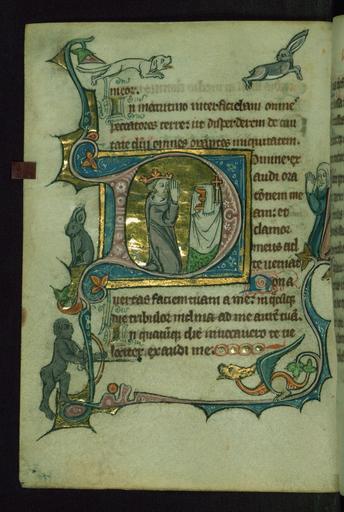 meor.
In matutino interficiebam omnes
peccatores terre: ut disperderem de ciui
tate dñi omnes operantes iniquitatem.
Domine ex
audi ora
cionem me
am: et
clamor
meus ad
te veniat
Non a
uertas faciem tuam a me: in quacūq;
die tribulor inclina ad me aurē tuā.
In quacūq; die inuocauero te ue
lociter exaudi me